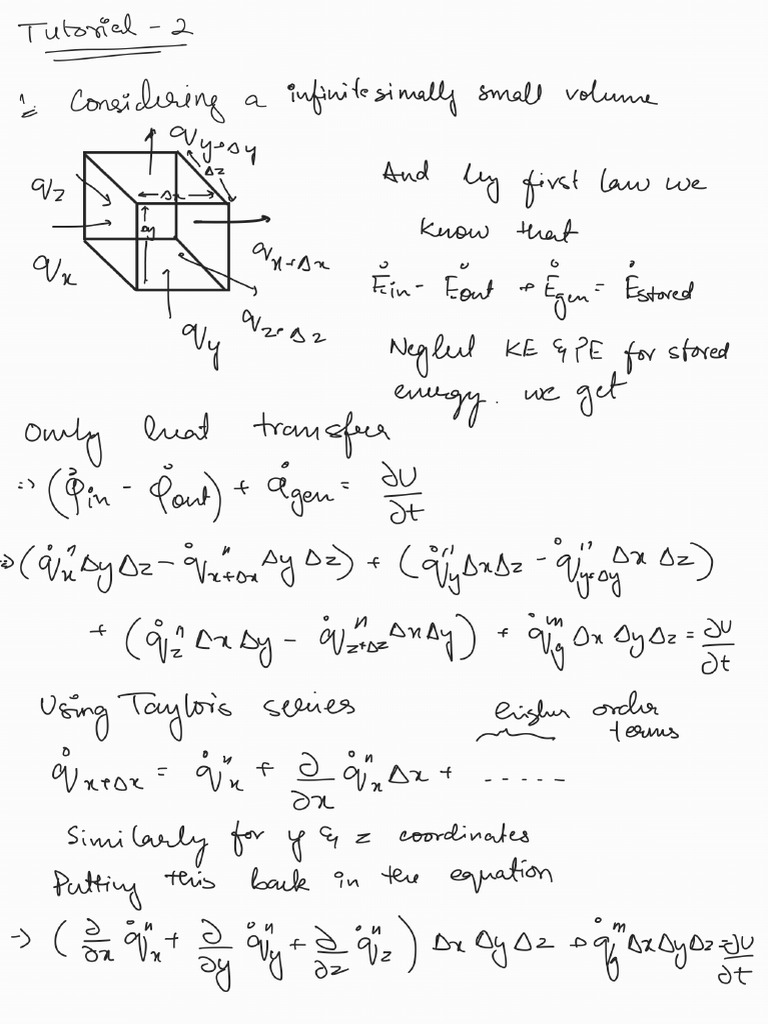 Tutorial - 2
1. Considering a infinitesimally small volume
q_{y+Δy}
Δz
q_z
Δx
Δy
q_x
q_{x+Δx}
q_{z+Δz}
q_y
And by first law we
know that
Ė_in - Ė_out + Ė_gen = Ė_stored
Neglect KE & PE for stored
energy. we get
Only heat transfer
⇒ (Q̇_in - Q̇_out) + Q̇_gen = ∂U/∂t
⇒ (q̇_x'' Δy Δz - q̇''_{x+Δx} Δy Δz) + (q̇''_y Δx Δz - q̇''_{y+Δy} Δx Δz)
+ (q̇_z'' Δx Δy - q̇''_{z+Δz} Δx Δy) + q̇_g''' Δx Δy Δz = ∂U/∂t
Using Taylor's series
higher order
terms
q̇_{x+Δx} = q̇''_x + ∂/∂x q̇''_x Δx + ......
Similarly for y & z coordinates
Putting this back in the equation
→ (∂/∂x q̇''_x + ∂/∂y q̇''_y + ∂/∂z q̇''_z) Δx Δy Δz + q̇_g''' Δx Δy Δz = ∂U/∂t